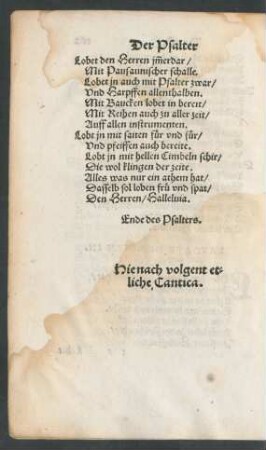 Der Psalter
Lobet den Herren jmerdar/
Mit Pausaunischer schalle.
Lobet jn auch mit Psalter zwar/
Und Harpffen allenthalben.
Mit Baucken lobet in bereit/
Mit Reihen auch zu aller zeit/
Auff allen instrumenten.
Lobt jn mit saiten für und für/
Und pfeiffen auch bereite.
Lobt jn mit hellen Cimbeln schir/
Die wol klingen der zeite.
Alles was nur ein athem hat/
Dasselb sol loben frü und spat/
Den Herren/ Halleluia.
Ende des Psalters.
Hienach volgent et-
liche Cantica.